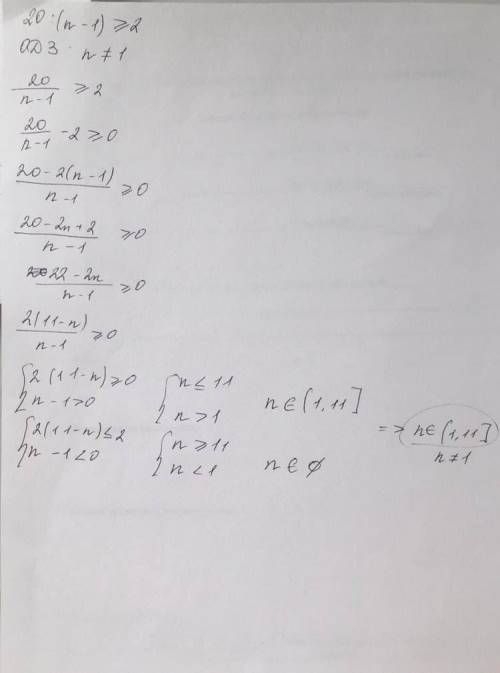 20 : (n - 1) ≥ 2
ОДЗ : n ≠ 1
20/(n-1) ≥ 2
20/(n-1) - 2 ≥ 0
(20 - 2(n - 1))/(n - 1) ≥ 0
(20 - 2n + 2)/(n - 1) ≥ 0
(22 - 2n)/(n - 1) ≥ 0
2(11 - n)/(n - 1) ≥ 0
{2(11-n) ≥ 0 {n ≤ 11
{n - 1 > 0 {n > 1 n ∈ (1, 11]
{2(11-n) ≤ 2 {n ≥ 11 => n ∈ (1, 11]
{n - 1 < 0 {n < 1 n ∈ ∅ n ≠ 1